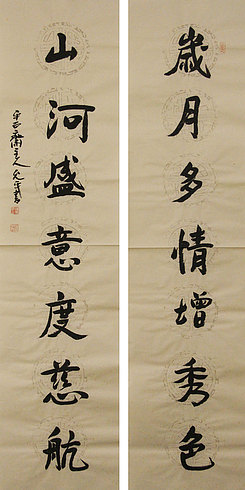 歳月多情增秀色
山河盛意度慈航